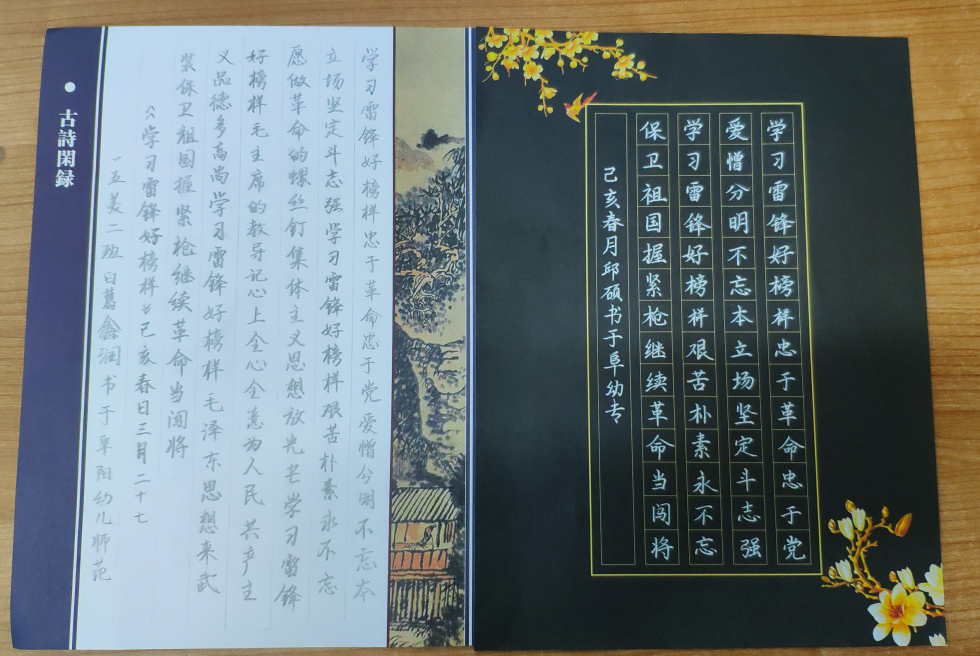 学习雷锋好榜样忠于革命忠于党
爱憎分明不忘本立场坚定斗志强
学习雷锋好榜样艰苦朴素永不忘
保卫祖国握紧枪继续革命当闯将
己亥春月邱硕书于阜幼专
学习雷锋好榜样忠于革命忠于党爱憎分明不忘本
立场坚定斗志强学习雷锋好榜样艰苦朴素永不忘
愿做革命的螺丝钉集体主义思想放光芒学习雷锋
好榜样毛主席的教导记心上全心全意为人民共产主
义品德多高尚学习雷锋好榜样毛泽东思想来武
装保卫祖国握紧枪继续革命当闯将
《学习雷锋好榜样》己亥春日三月二十七
一五美二班白葛鑫润书于阜阳幼儿师范
古詩閑録